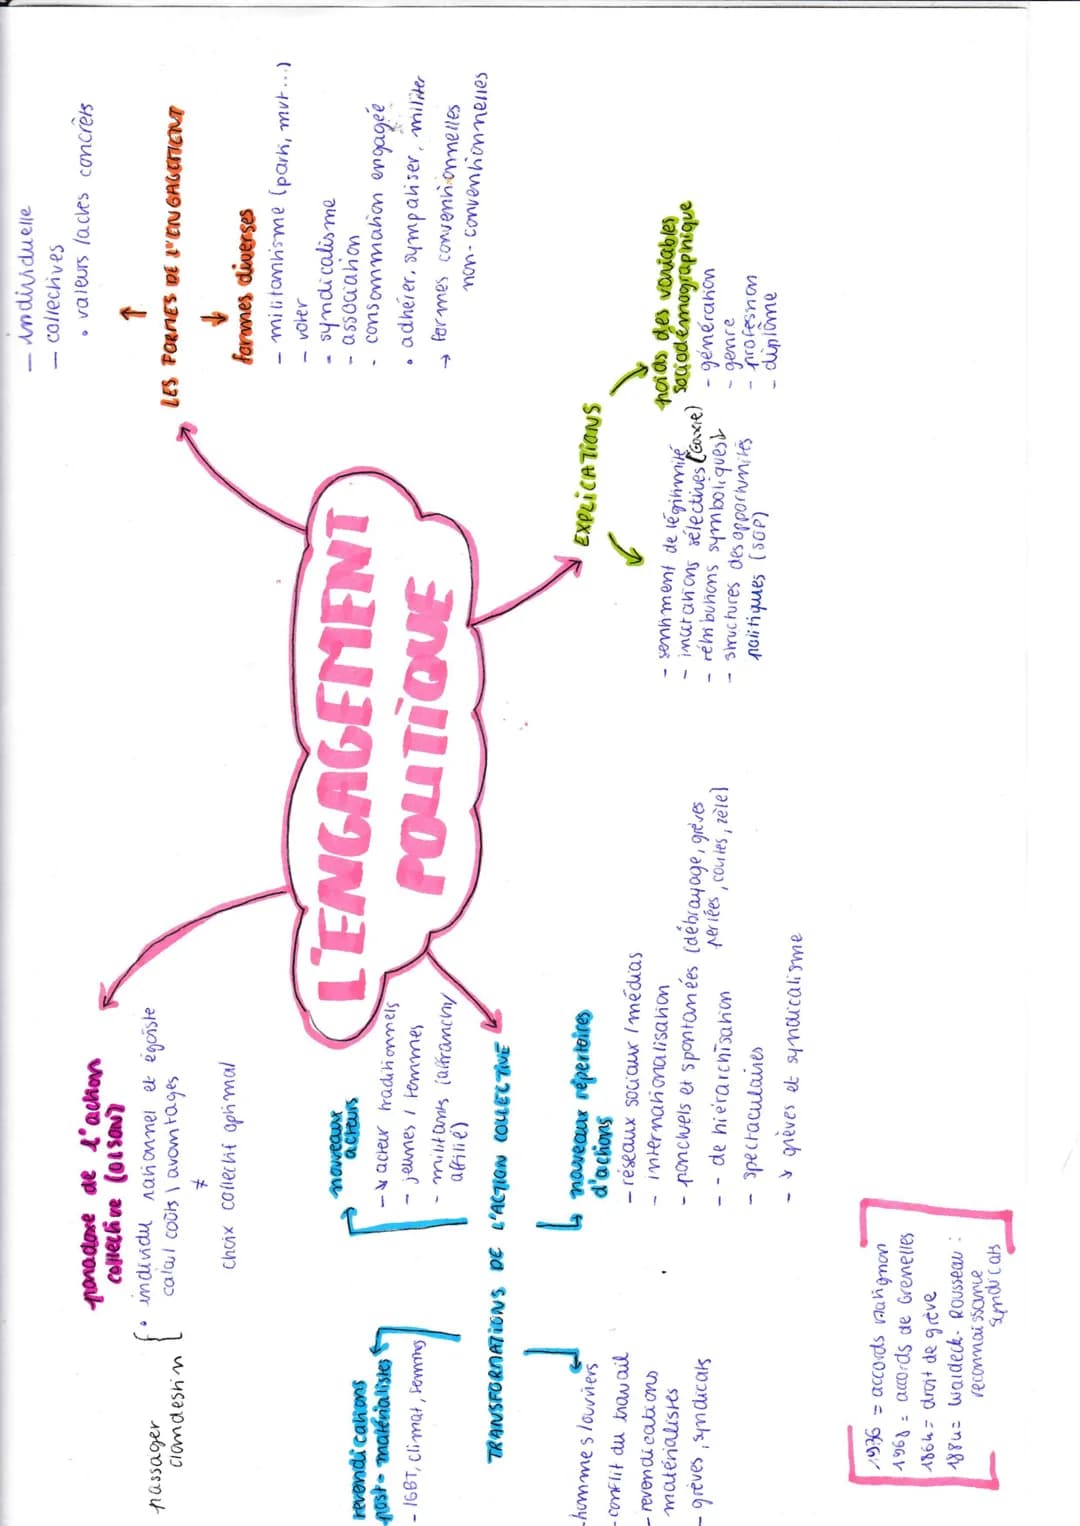 L'ENGAGEMENT
POLITIQUE
paradoxe de l'action
collective (OLSON)
passager
clandestin
• individu rationnel et égoïste
calcul coûts \ avantages
≠
choix collectif optimal
- individuelle
- collectives
• valeurs / actes concrets
↑
LES FORMES DE L'ENGAGEMENT
↓
formes diverses
- militantisme (parti, mvt...)
- voter
- syndicalisme
- association
- consommation engagée
• adhérer, sympathiser, militer
→ formes conventionnelles
non-conventionnelles
EXPLICATIONS
- sentiment de légitimité
- incitations sélectives (Gaxie)
- rétributions symboliques
- structures des opportunités
politiques (SOP)
poids des variables
sociodémographique
- génération
- genre
- profession
- diplôme
TRANSFORMATIONS DE L'ACTION COLLECTIVE
revendications
post-matérialistes
- LGBT, climat, femmes
nouveaux
acteurs
- ↘ acteur traditionnels
- jeunes / femmes
- militants (affranchi/
affilié)
- hommes / ouvriers
- conflit du travail
- revendications
matérialistes
- grèves, syndicats
↳ nouveaux répertoires
d'actions
- réseaux sociaux / médias
- internationalisation
- ponctuels et spontanées (débrayage, grèves
perlées, courtes, zèle)
- - de hiérarchisation
- spectaculaires
- ↘ grèves et syndicalisme
1936 = accords Matignon
1968 = accords de Grenelles
1864 = droit de grève
1884 = Waldeck-Rousseau :
reconnaissance
syndicats